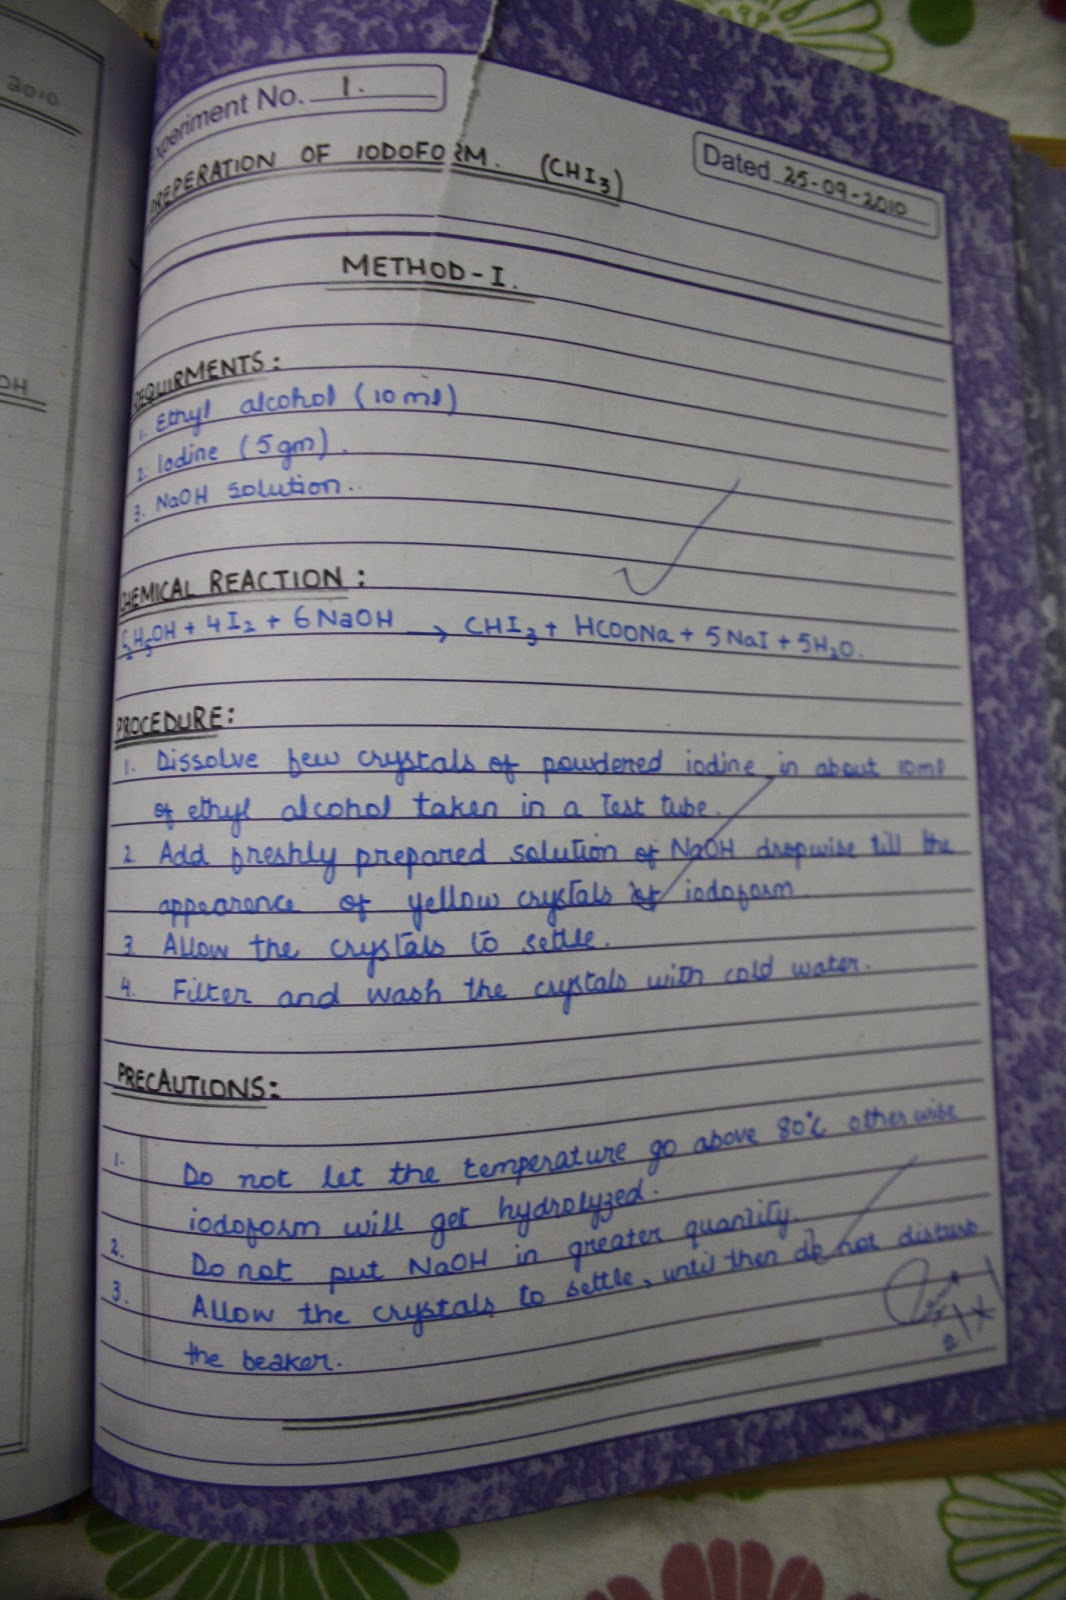 2010
OH
Experiment No. 1.
Dated 25-09-2010
PREPERATION OF IODOFORM. (CHI₃)
METHOD-I.
REQUIRMENTS:
1. Ethyl alcohol (10 ml)
2. Iodine (5 gm).
3. NaOH solution.
CHEMICAL REACTION:
C₂H₅OH + 4I₂ + 6NaOH → CHI₃ + HCOONa + 5NaI + 5H₂O.
PROCEDURE:
1. Dissolve few crystals of powdered iodine in about 10ml
of ethyl alcohol taken in a test tube.
2. Add freshly prepared solution of NaOH dropwise till the
appearance of yellow crystals of iodoform.
3. Allow the crystals to settle.
4. Filter and wash the crystals with cold water.
PRECAUTIONS:
1. Do not let the temperature go above 80°C otherwise
iodoform will get hydrolyzed.
2. Do not put NaOH in greater quantity.
3. Allow the crystals to settle, until then do not disturb
the beaker.